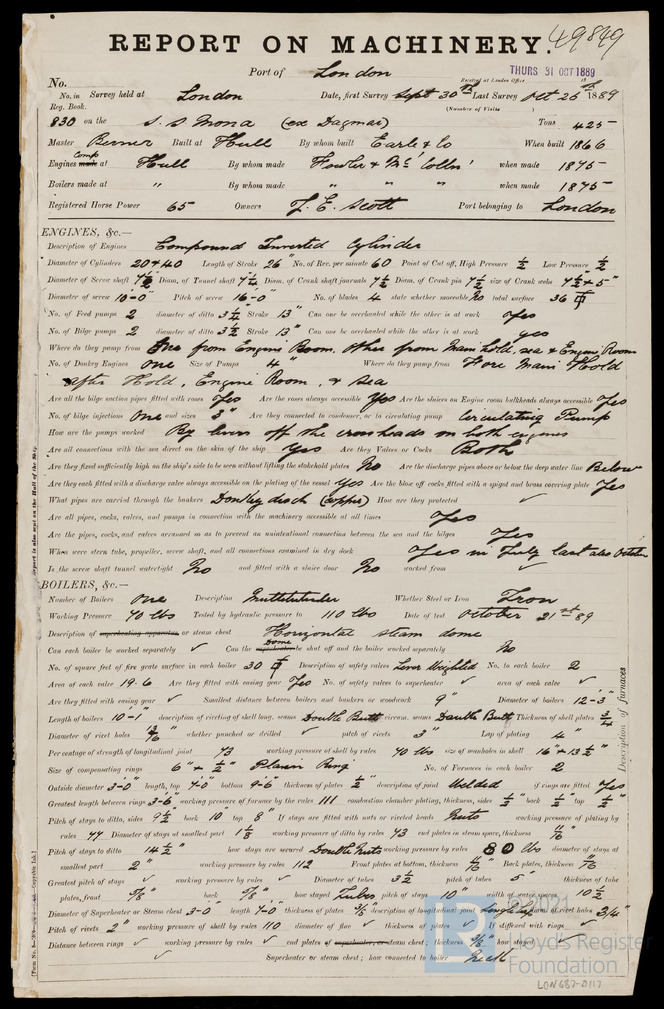 REPORT ON MACHINERY. 49849
Port of London
Received at London Office THURS 31 OCT 1889
No.
No. in Survey held at London Date, first Survey Sept 30th Last Survey Oct 26th 1889
Reg. Book. (Number of Visits
830 on the S.S Mona (ex Dagmar) Tons 425
Master Berner Built at Hull By whom built Earle & Co When built 1866
Engines Comp made at Hull By whom made Fowler & Mc Collin when made 1875
Boilers made at " By whom made " " " when made 1875
Registered Horse Power 65 Owners J. E. Scott Port belonging to London
ENGINES, &c.—
Description of Engines Compound Inverted Cylinder
Diameter of Cylinders 20 & 40 Length of Stroke 26" No. of Rev. per minute 60 Point of Cut off, High Pressure 1/2 Low Pressure 1/2
Diameter of Screw shaft 7 1/2 Diam. of Tunnel shaft 7 1/4 Diam. of Crank shaft journals 7 1/2 Diam. of Crank pin 7 1/2 size of Crank webs 7 1/2 & 5"
Diameter of screw 10-0" Pitch of screw 16-0" No. of blades 4 state whether moveable No total surface 36
No. of Feed pumps 2 diameter of ditto 3 1/4 Stroke 13" Can one be overhauled while the other is at work Yes
No. of Bilge pumps 2 diameter of ditto 3 1/2 Stroke 13" Can one be overhauled while the other is at work yes
Where do they pump from One from Engine Room. Other from Main hold, sea & Engine Room
No. of Donkey Engines One Size of Pumps 4" Where do they pump from Fore Main Hold
After Hold, Engine Room, & sea
Are all the bilge suction pipes fitted with roses Yes Are the roses always accessible Yes Are the sluices on Engine room bulkheads always accessible Yes
No. of bilge injections One and sizes 3" Are they connected to condenser, or to circulating pump Circulating Pump
How are the pumps worked By levers off the crossheads on both engines
Are all connections with the sea direct on the skin of the ship Yes Are they Valves or Cocks Both
Are they fixed sufficiently high on the ship's side to be seen without lifting the stokehold plates No Are the discharge pipes above or below the deep water line Below
Are they each fitted with a discharge valve always accessible on the plating of the vessel Yes Are the blow off cocks fitted with a spigot and brass covering plate Yes
What pipes are carried through the bunkers Donkey disch (copper) How are they protected ✓
Are all pipes, cocks, valves, and pumps in connection with the machinery accessible at all times Yes
Are the pipes, cocks, and valves arranged so as to prevent an unintentional connection between the sea and the bilges Yes
When were stern tube, propeller, screw shaft, and all connections examined in dry dock Yes in July last also October
Is the screw shaft tunnel watertight No and fitted with a sluice door No worked from ✓
BOILERS, &c.—
Number of Boilers One Description Multitubular Whether Steel or Iron Iron
Working Pressure 70 lbs Tested by hydraulic pressure to 110 lbs Date of test October 21st 89
Description of superheating apparatus or steam chest Horizontal steam dome
Can each boiler be worked separately ✓ Can the superheater Dome be shut off and the boiler worked separately No
No. of square feet of fire grate surface in each boiler 30 Description of safety valves Lever Weighted No. to each boiler 2
Area of each valve 19.6 Are they fitted with easing gear Yes No. of safety valves to superheater ✓ area of each valve ✓
Are they fitted with easing gear ✓ Smallest distance between boilers and bunkers or woodwork 9" Diameter of boilers 12-3"
Length of boilers 10-1" description of riveting of shell long. seams Double Butt circum. seams Double Butt Thickness of shell plates 3/4
Diameter of rivet holes 13/16" whether punched or drilled ✓ pitch of rivets 3" Lap of plating 4"
Percentage of strength of longitudinal joint 73 working pressure of shell by rules 70 lbs size of manholes in shell 16" & 13 1/2"
Size of compensating rings 6" & 1/2" Plain Ring No. of Furnaces in each boiler 2
Outside diameter 3-0" length, top 7-0" bottom 9-6" thickness of plates 1/2" description of joint Welded if rings are fitted Yes
Greatest length between rings 3-6" working pressure of furnace by the rules 111 combustion chamber plating, thickness, sides 1/2" back 1/2" top 1/2"
Pitch of stays to ditto, sides 9 1/2 back 10" top 8" If stays are fitted with nuts or riveted heads Nuts working pressure of plating by
rules 77 Diameter of stays at smallest part 1 1/8 working pressure of ditto by rules 73 end plates in steam space, thickness 11/16"
Pitch of stays to ditto 14 1/2" how stays are secured Double Nuts working pressure by rules 80 lbs diameter of stays at
smallest part 2" working pressure by rules 112 Front plates at bottom, thickness 11/16 Back plates, thickness
Greatest pitch of stays ✓ working pressure by rules ✓ Diameter of tubes 3 1/2 pitch of tubes 5" thickness of tube
plates, front 5/8" back 5/8" how stayed Tubes pitch of stays 10" width of water spaces 10 1/2
Diameter of Superheater or Steam chest 3-0" length 7-0" thickness of plates 3/8" description of longitudinal joint Single Lap diam. of rivet holes 3/4"
Pitch of rivets 2" working pressure of shell by rules 110 diameter of flue ✓ thickness of plates ✓ If stiffened with rings ✓
Distance between rings ✓ working pressure by rules ✓ end plates of superheater, or steam chest; thickness how stayed ✓
✓ Superheater or steam chest; how connected to boiler Neck
Description of furnaces
Report is also sent on the Hull of the Ship
Copyable Ink.]
© 2021
Lloyd's Register
Foundation
LON687-0117